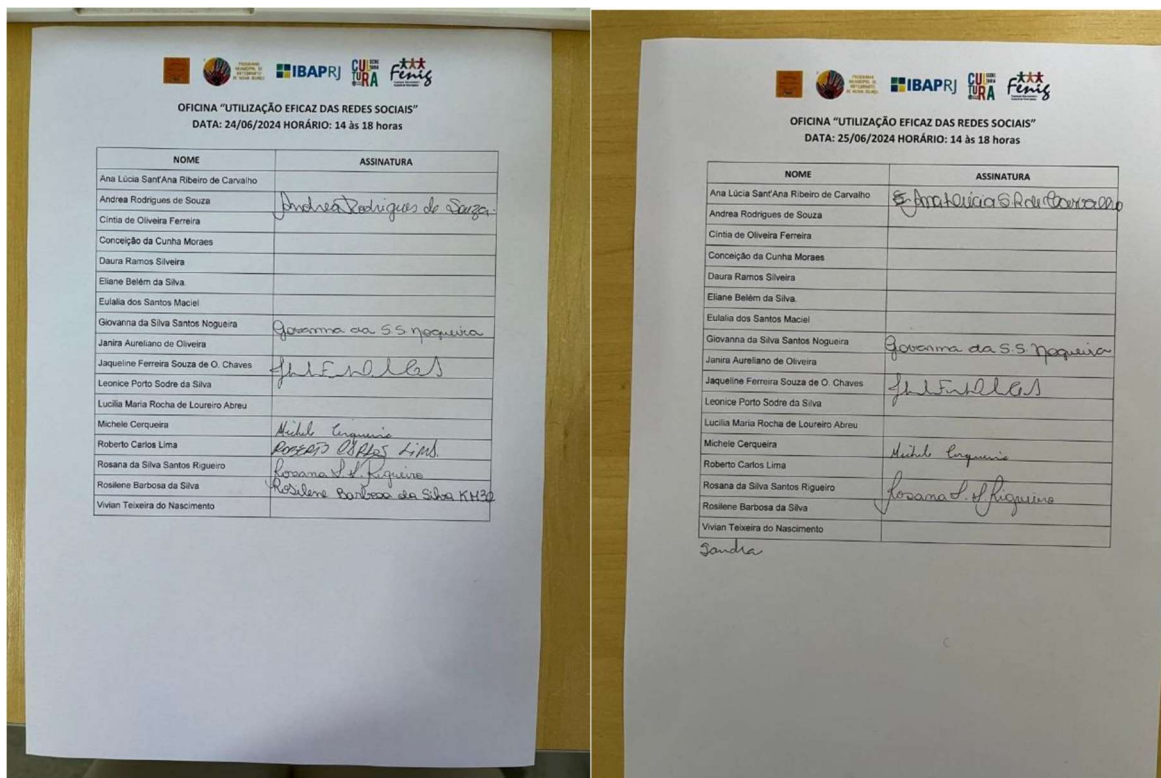 IBAPRJ CULTURA Fenig
OFICINA “UTILIZAÇÃO EFICAZ DAS REDES SOCIAIS”
DATA: 24/06/2024 HORÁRIO: 14 às 18 horas
NOME ASSINATURA
Ana Lúcia Sant'Ana Ribeiro de Carvalho
Andrea Rodrigues de Souza Andrea Rodrigues de Souza.
Cíntia de Oliveira Ferreira
Conceição da Cunha Moraes
Daura Ramos Silveira
Eliane Belém da Silva.
Eulalia dos Santos Maciel
Giovanna da Silva Santos Nogueira Giovanna da S S Nogueira
Janira Aureliano de Oliveira
Jaqueline Ferreira Souza de O. Chaves
Leonice Porto Sodre da Silva
Lucilia Maria Rocha de Loureiro Abreu
Michele Cerqueira Michele Cerqueira
Roberto Carlos Lima ROBERTO CARLOS LIMA.
Rosana da Silva Santos Rigueiro Rosana S. S. Rigueiro
Rosilene Barbosa da Silva Rosilene Barbosa da Silva KM32
Vivian Teixeira do Nascimento
IBAPRJ CULTURA Fenig
OFICINA “UTILIZAÇÃO EFICAZ DAS REDES SOCIAIS”
DATA: 25/06/2024 HORÁRIO: 14 às 18 horas
NOME ASSINATURA
Ana Lúcia Sant'Ana Ribeiro de Carvalho Ana Lúcia S R de Carvalho
Andrea Rodrigues de Souza
Cíntia de Oliveira Ferreira
Conceição da Cunha Moraes
Daura Ramos Silveira
Eliane Belém da Silva.
Eulalia dos Santos Maciel
Giovanna da Silva Santos Nogueira Giovanna da S.S. Nogueira
Janira Aureliano de Oliveira
Jaqueline Ferreira Souza de O. Chaves
Leonice Porto Sodre da Silva
Lucilia Maria Rocha de Loureiro Abreu
Michele Cerqueira Michele Cerqueira
Roberto Carlos Lima
Rosana da Silva Santos Rigueiro Rosana S. S. Rigueiro
Rosilene Barbosa da Silva
Vivian Teixeira do Nascimento
Sandra